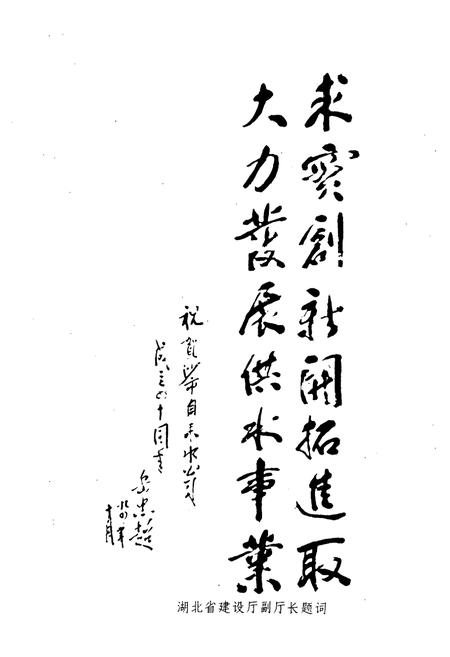 求實創新開拓進取
大力發展供水事業
祝賀沙市自来水公司
成立四十周年
岳忠超
十月
湖北省建设厅副厅长题词